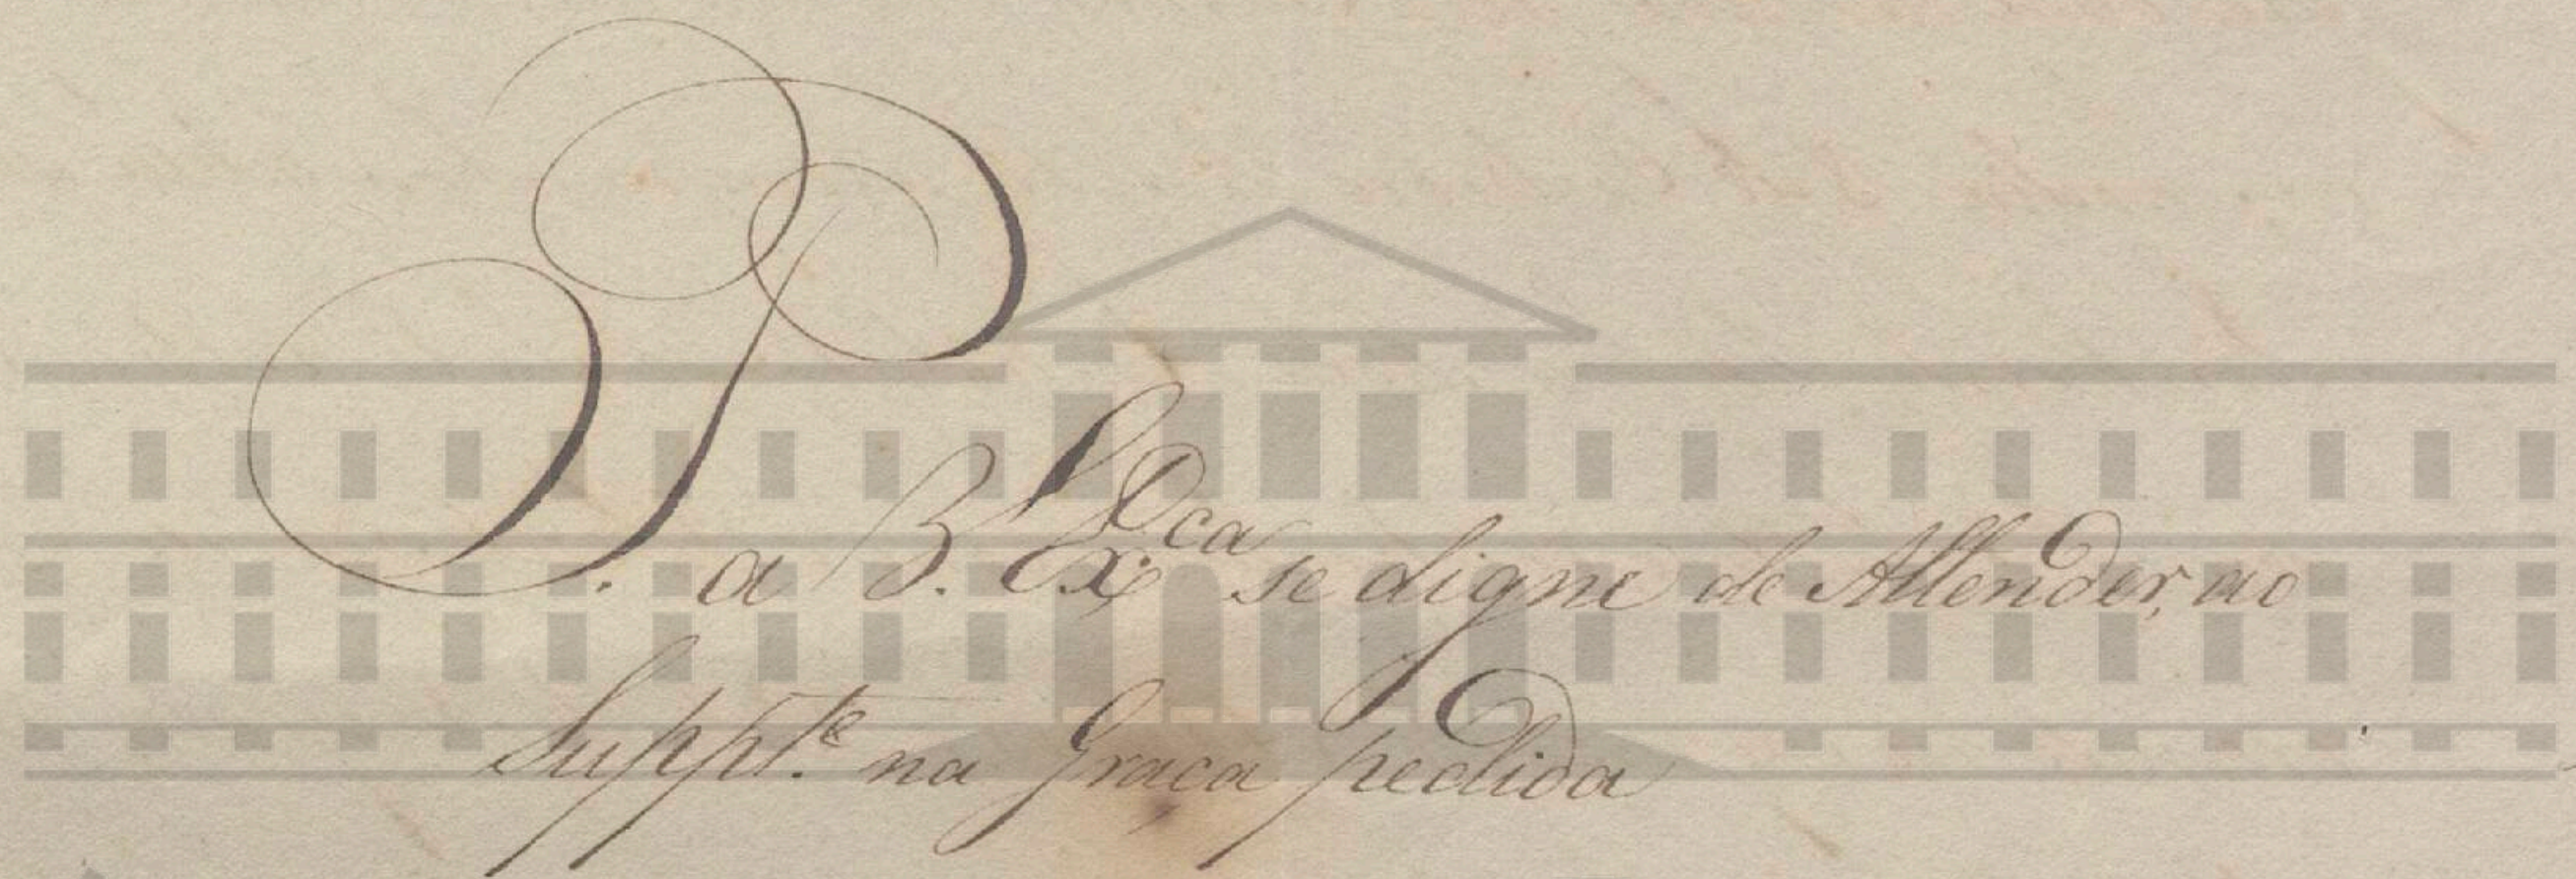 P. a V. Ex.ca se digne de Attender, ao
Suppt.e na Graca pedida